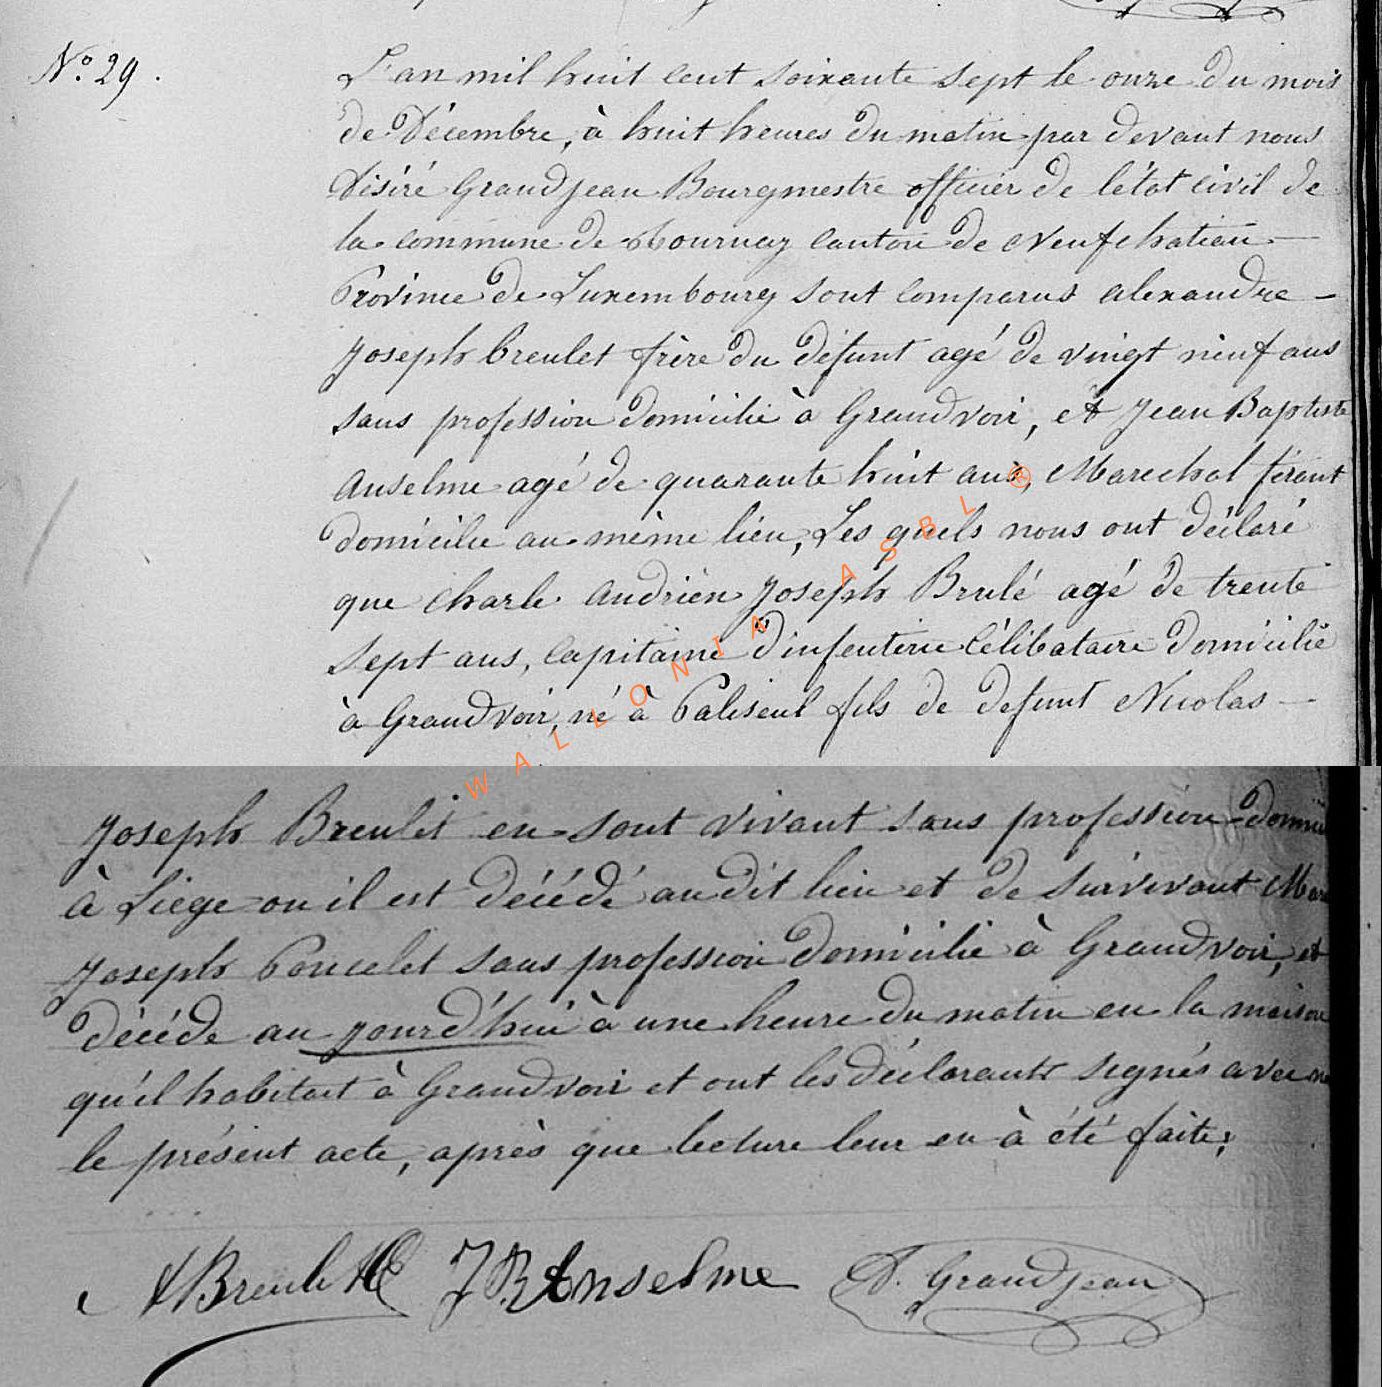 Nº 29.
L'an mil huit cent soixante sept le onze du mois
de Décembre, à huit heures du matin par devant nous
Désiré Grandjean Bourgmestre officier de l'état civil de
la commune de Tournay canton de Neufchatieau
Province de Luxembourg sont comparus alexandre
Joseph breulet frère du défunt agé de vingt neuf ans
sans profession domicilié à Grandvoir, et Jean Baptiste
Anselme agé de quarante huit ans, Marechal férant
domicilie au même lieu, Les quels nous ont déclaré
que Charle Andrien Joseph Brulé agé de trente
sept ans, capitaine d'infenterie Célibataire domicilié
à Grandvoir, né à Paliseul fils de defunt Nicolas
Joseph Breulet en sont vivant sans profession domici
à Liège ou il est décédé au dit lieu et de survivant Mari
Joseph Poncelet sans profession domicilié à Grandvoir, et
décéde au jourd'hui à une heure du matin en la maison
qu'il habitait à Grandvoir et ont les déclarants signés avec
le présent acte, après que lecture leur en à été faite;
ABreulet JBAnselme D. Grandjean
WALLONIA ASBL ®